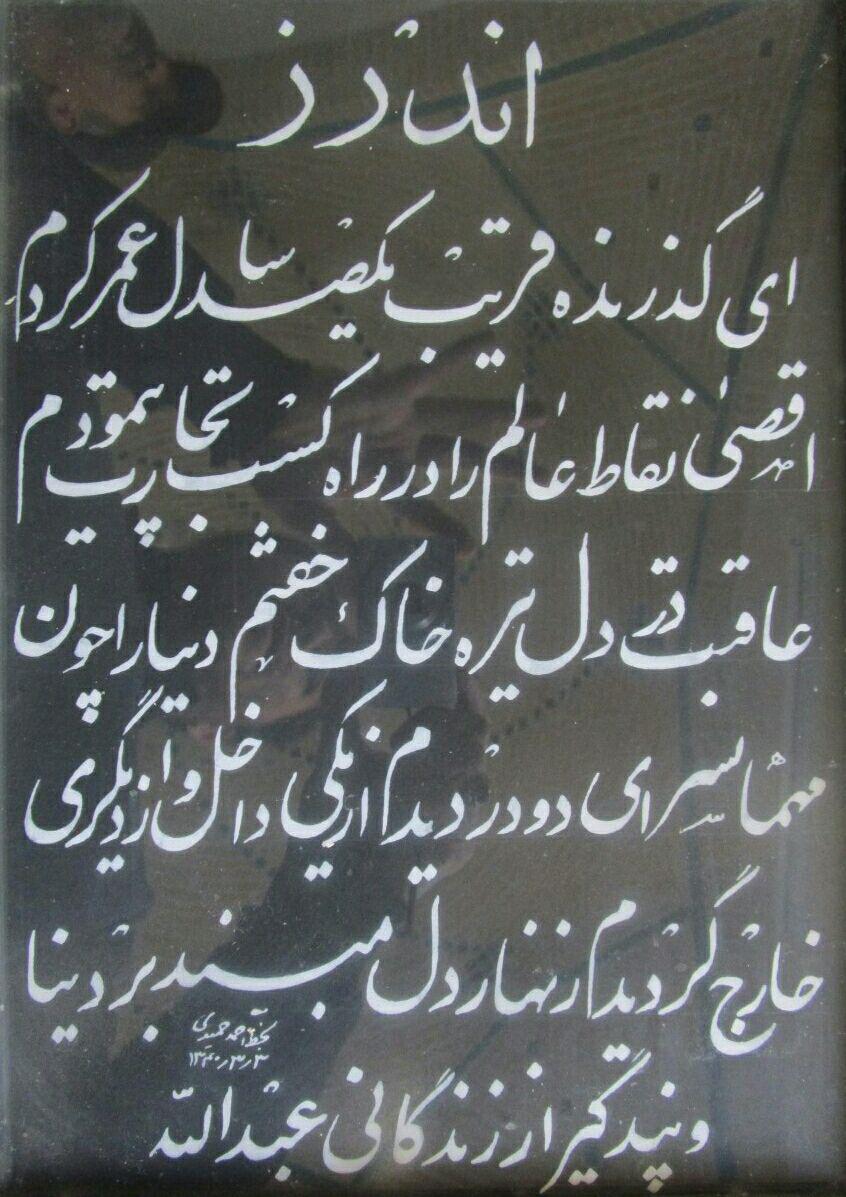 اندرز
ای گذرنده قریب یکصد سال عمر کردم
اقصی نقاط عالم را در راه کسب تجارب پیمودم
عاقبت در دل تیره خاک خفتم دنیا را چون
مهمانسرای دو در دیدم از یکی داخل و از دیگری
خارج گردیدم زنهار دل مبند بر دنیا
بخط احمد حمیدی
۱۳۴۰٫۳٫۳
و پند گیر از زندگانی عبدالله